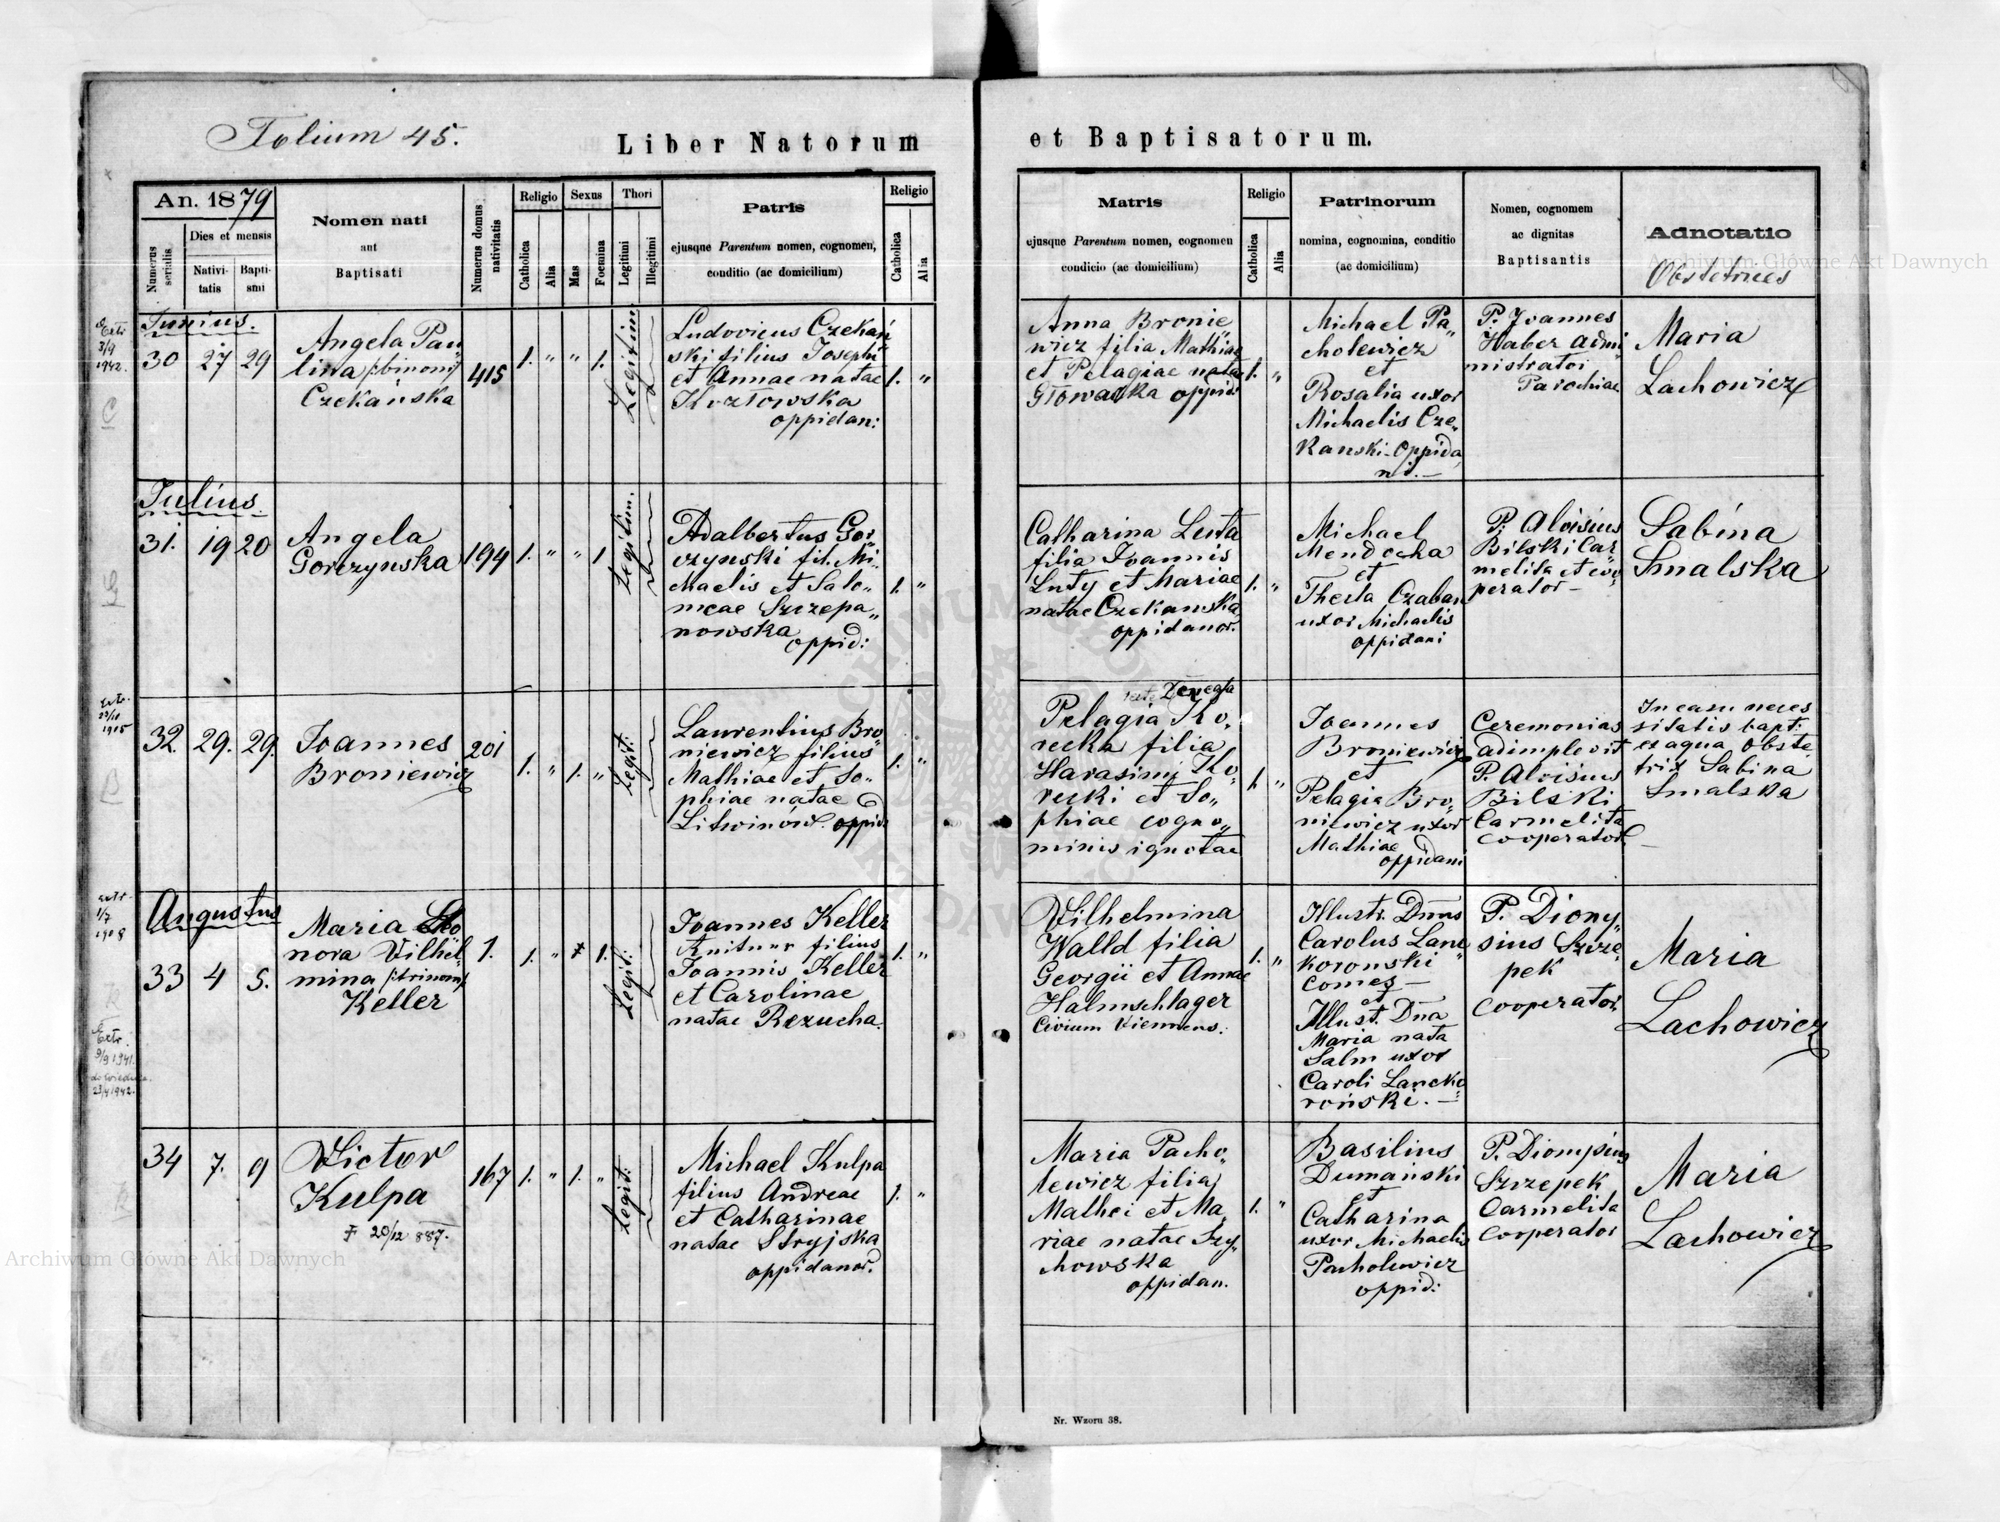 Folium 45.
Liber Natorum et Baptisatorum.
An. 1879
Numerus serialis
Dies et mensis
Nativitatis
Baptismi
Nomen nati
aut
Baptisati
Numerus domus nativitatis
Religio
Catholica
Alia
Sexus
Mas
Foemina
Thori
Legitimi
Illegitimi
Patris
ejusque Parentum nomen, cognomen,
conditio (ac domicilium)
Religio
Catholica
Alia
Matris
ejusque Parentum nomen, cognomen
condicio (ac domicilium)
Religio
Catholica
Alia
Patrinorum
nomina, cognomina, conditio
(ac domicilium)
Nomen, cognomen
ac dignitas
Baptisantis
Adnotatio
Obstetrices
Extr
3/9
1942.
C
Junius.
30 27 29
Angela Pau„
lina /:binom:/
Czekańska
415
1. „ „ 1.
Legitim.
Ludovicus Czekań
ski filius Josephi
et Annae natae
Kozłowska
oppidan:
1. „
Anna Bronie
wicz filia Mathiae
et Pelagiae natae
Głowacka oppid:
1. „
Michael Pa„
cholewicz
et
Rosalia uxor
Michaelis Cze„
kanski - oppida
ni. —
P. Joannes
Haber admi
nistrator
Parochiae
Maria
Lachowicz
G
Julius.
31. 19 20
Angela
Gorczynska
194
1. „ „ 1
Legitim.
Adalbertus Gor„
czynski fil. Mi„
chaelis et Salo„
meae Szczepa„
nowska
oppid:
1. „
Catharina Luta
filia Joannis
Luty et Mariae
natae Czekanska
oppidanor.
1. „
Michael
Mendocha
et
Thecla Czaban
uxor Michaelis
oppidani
P. Aloisius
Bilski Car„
melita et coo„
perator —
Sabina
Smalska
Extr.
23/10
1905
B
32. 29. 29.
Joannes
Broniewicz
201
1. „ 1. „
Legit:
Laurentius Bro„
niewicz filius
Mathiae et So„
phiae natae
Litwinów. oppid:
1. „
Pelagia Ko„
recka filia
Harasimi Ko„
recki et So„
phiae cogno„
minis ignotae
1. „
Joannes
Broniewicz
et
Pelagia Bro„
niewicz uxor
Mathiae
oppidani
Ceremonias
adimplevit
P. Aloisius
Bilski
Carmelita
cooperator
In casu neces
sitatis bapt:
ex aqua obste„
trix Sabina
Smalska
extr.
1/7
1908
K
Augustus
33 4 5.
Maria Eleo
nora Vilhel„
mina /:trinom:/
Keller
1.
1. „ 1.
Legit:
Joannes Keller
filius
Joannis Keller
et Carolinae
natae Rezucha.
1. „
Vilhelmina
Walld filia
Georgii et Annae
Halmschlager
Civium Viennens:
1. „
Illustr. Dnus
Carolus Lanc„
koronski
comes —
et
Illust. Dna
Maria nata
Salm uxor
Caroli Lancko„
roński. —
P. Diony„
sius Szcze„
pek
cooperator.
Maria
Lachowicz
Extr.
9/9 1941.
do Wiednia.
23/4 1942.
K
34 7. 9
Victor
Kulpa
† 20/12 887.
167
1. „ 1. „
Legit:
Michael Kulpa
filius Andreae
et Catharinae
natae Stryjska
oppidanor.
1. „
Maria Pacho„
lewicz filia
Mathei et Ma„
riae natae Szy„
chowska
oppidan.
1. „
Basilius
Dumański
et
Catharina
uxor Michaelis
Pacholewicz
oppid:
P. Dionysius
Szczepek
Carmelita
cooperator
Maria
Lachowicz
Nr. Wzoru 38.
Archiwum Główne Akt Dawnych
Archiwum Główne Akt Dawnych